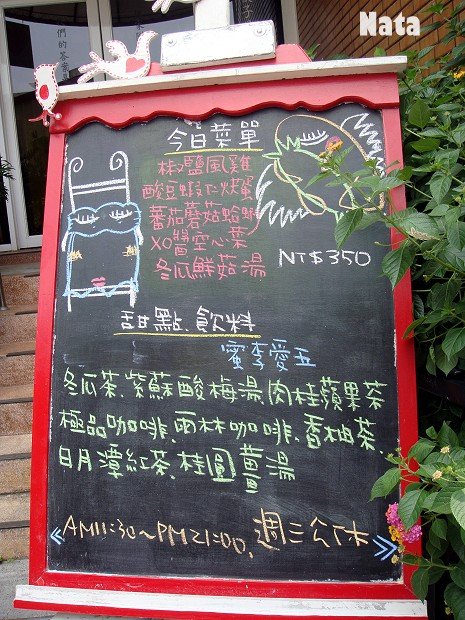 Nata
們的茶
今日菜單
椒鹽風雞
蕃茄蘑菇蛤蜊
XO醬空心菜
冬瓜鮮菇湯
NT$350
甜點.飲料
蜜李愛玉
冬瓜茶.紫蘇酸梅湯.肉桂蘋果茶
極品咖啡.雨林咖啡.香柚茶.
日月潭紅茶.桂圓薑湯
AM11:30~PM21:00,週三公休